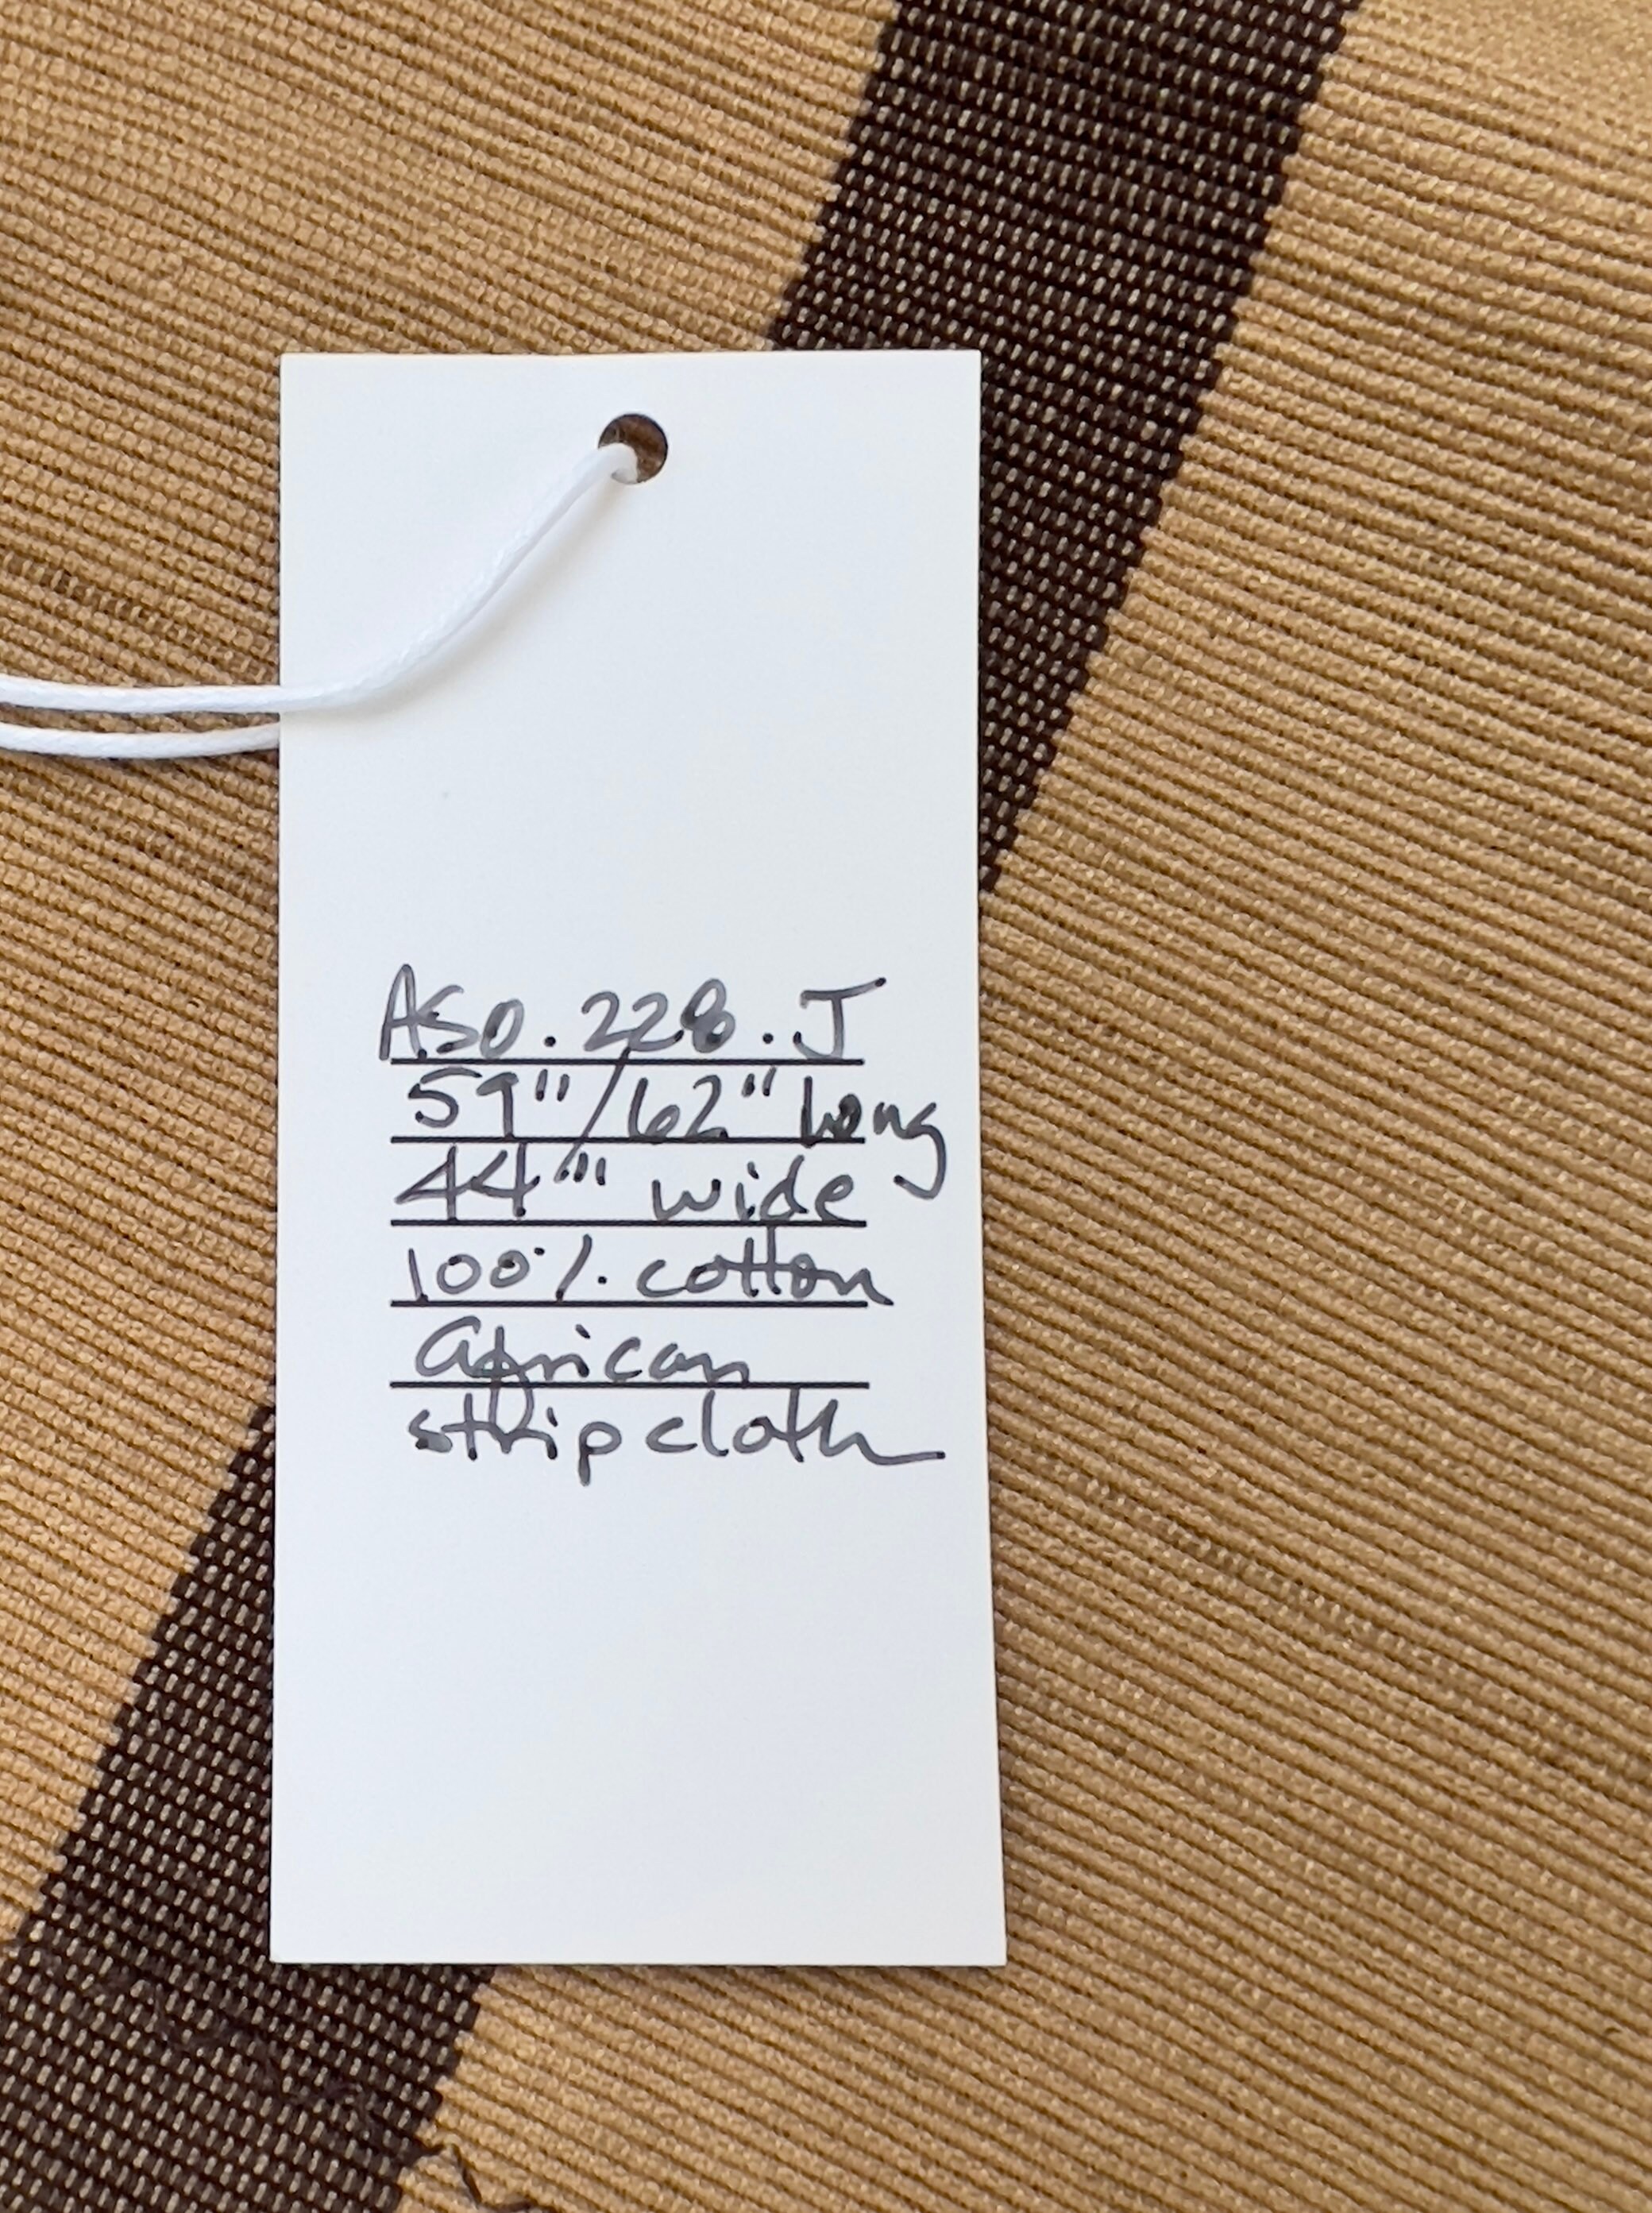 ASO.228.J
59"/62" long
44" wide
100% cotton
African
strip cloth